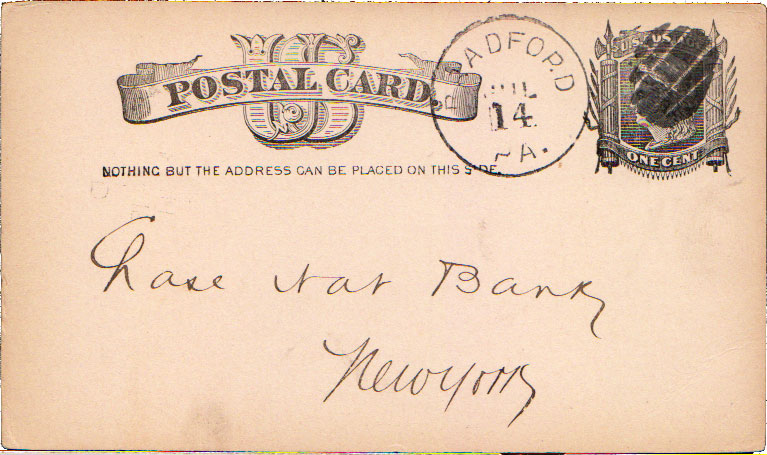 US
POSTAL CARD.
NOTHING BUT THE ADDRESS CAN BE PLACED ON THIS SIDE.
ADFORD
JUL
14
PA.
U.S. POSTAGE
ONE CENT
Chase Nat Bank
New York